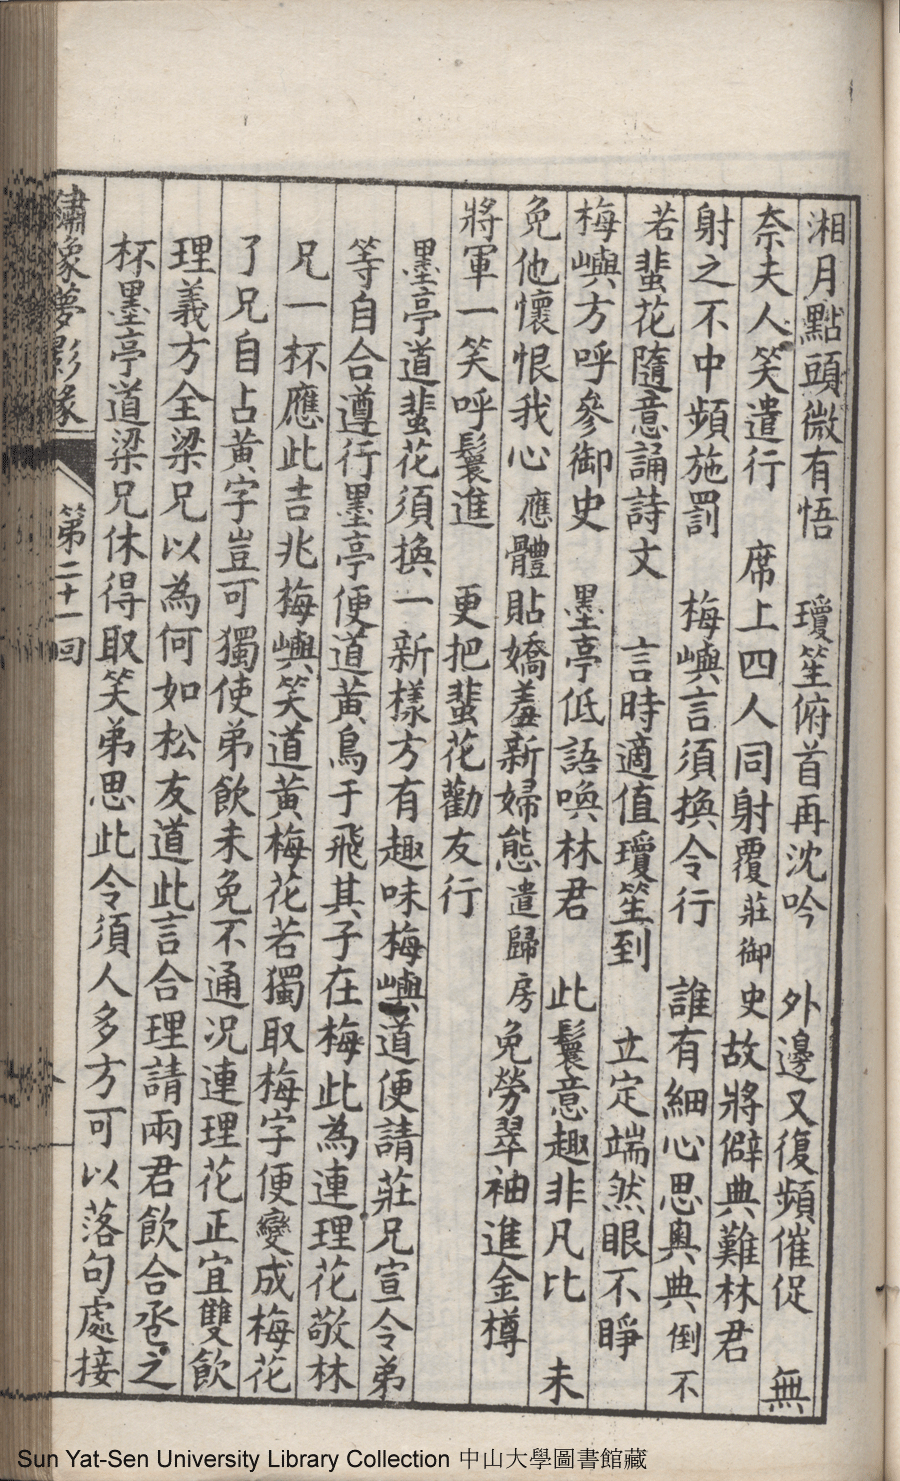 湘月點頭微有悟　瓊笙俯首再沈吟　外邊又復頻催促　無
奈夫人笑遣行　席上四人同射覆　莊御史故將僻典難林君
射之不中頻施罰　梅嶼言須換令行　誰有細心思奧典　倒不
若蜚花隨意誦詩文　言時適值瓊笙到　立定端然眼不睜
梅嶼方呼參御史　墨亭低語喚林君　此鬟意趣非凡比　未
免他懷恨我心　應體貼嬌羞新婦態　遣歸房免勞翠袖進金樽
將軍一笑呼鬟進　更把蜚花勸友行
墨亭道蜚花須換一新樣方有趣味梅嶼道便請莊兄宣令弟
等自合遵行墨亭便道黃鳥于飛其子在梅此為連理花敬林
兄一杯應此吉兆梅嶼笑道黃梅花若獨取梅字便變成梅花
了兄自占黃字豈可獨使弟飲未免不通況連理花正宜雙飲
理義方全梁兄以為何如松友道此言合理請兩君飲合巹之
杯墨亭道梁兄休得取笑弟思此令須人多方可以落句處接
繡像夢影緣
第二十一回
Sun Yat-Sen University Library Collection 中山大學圖書館藏